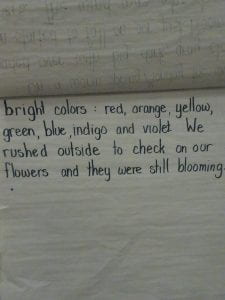 bright colors : red, orange, yellow,
green, blue, indigo and violet We
rushed outside to check on our
flowers and they were still blooming.